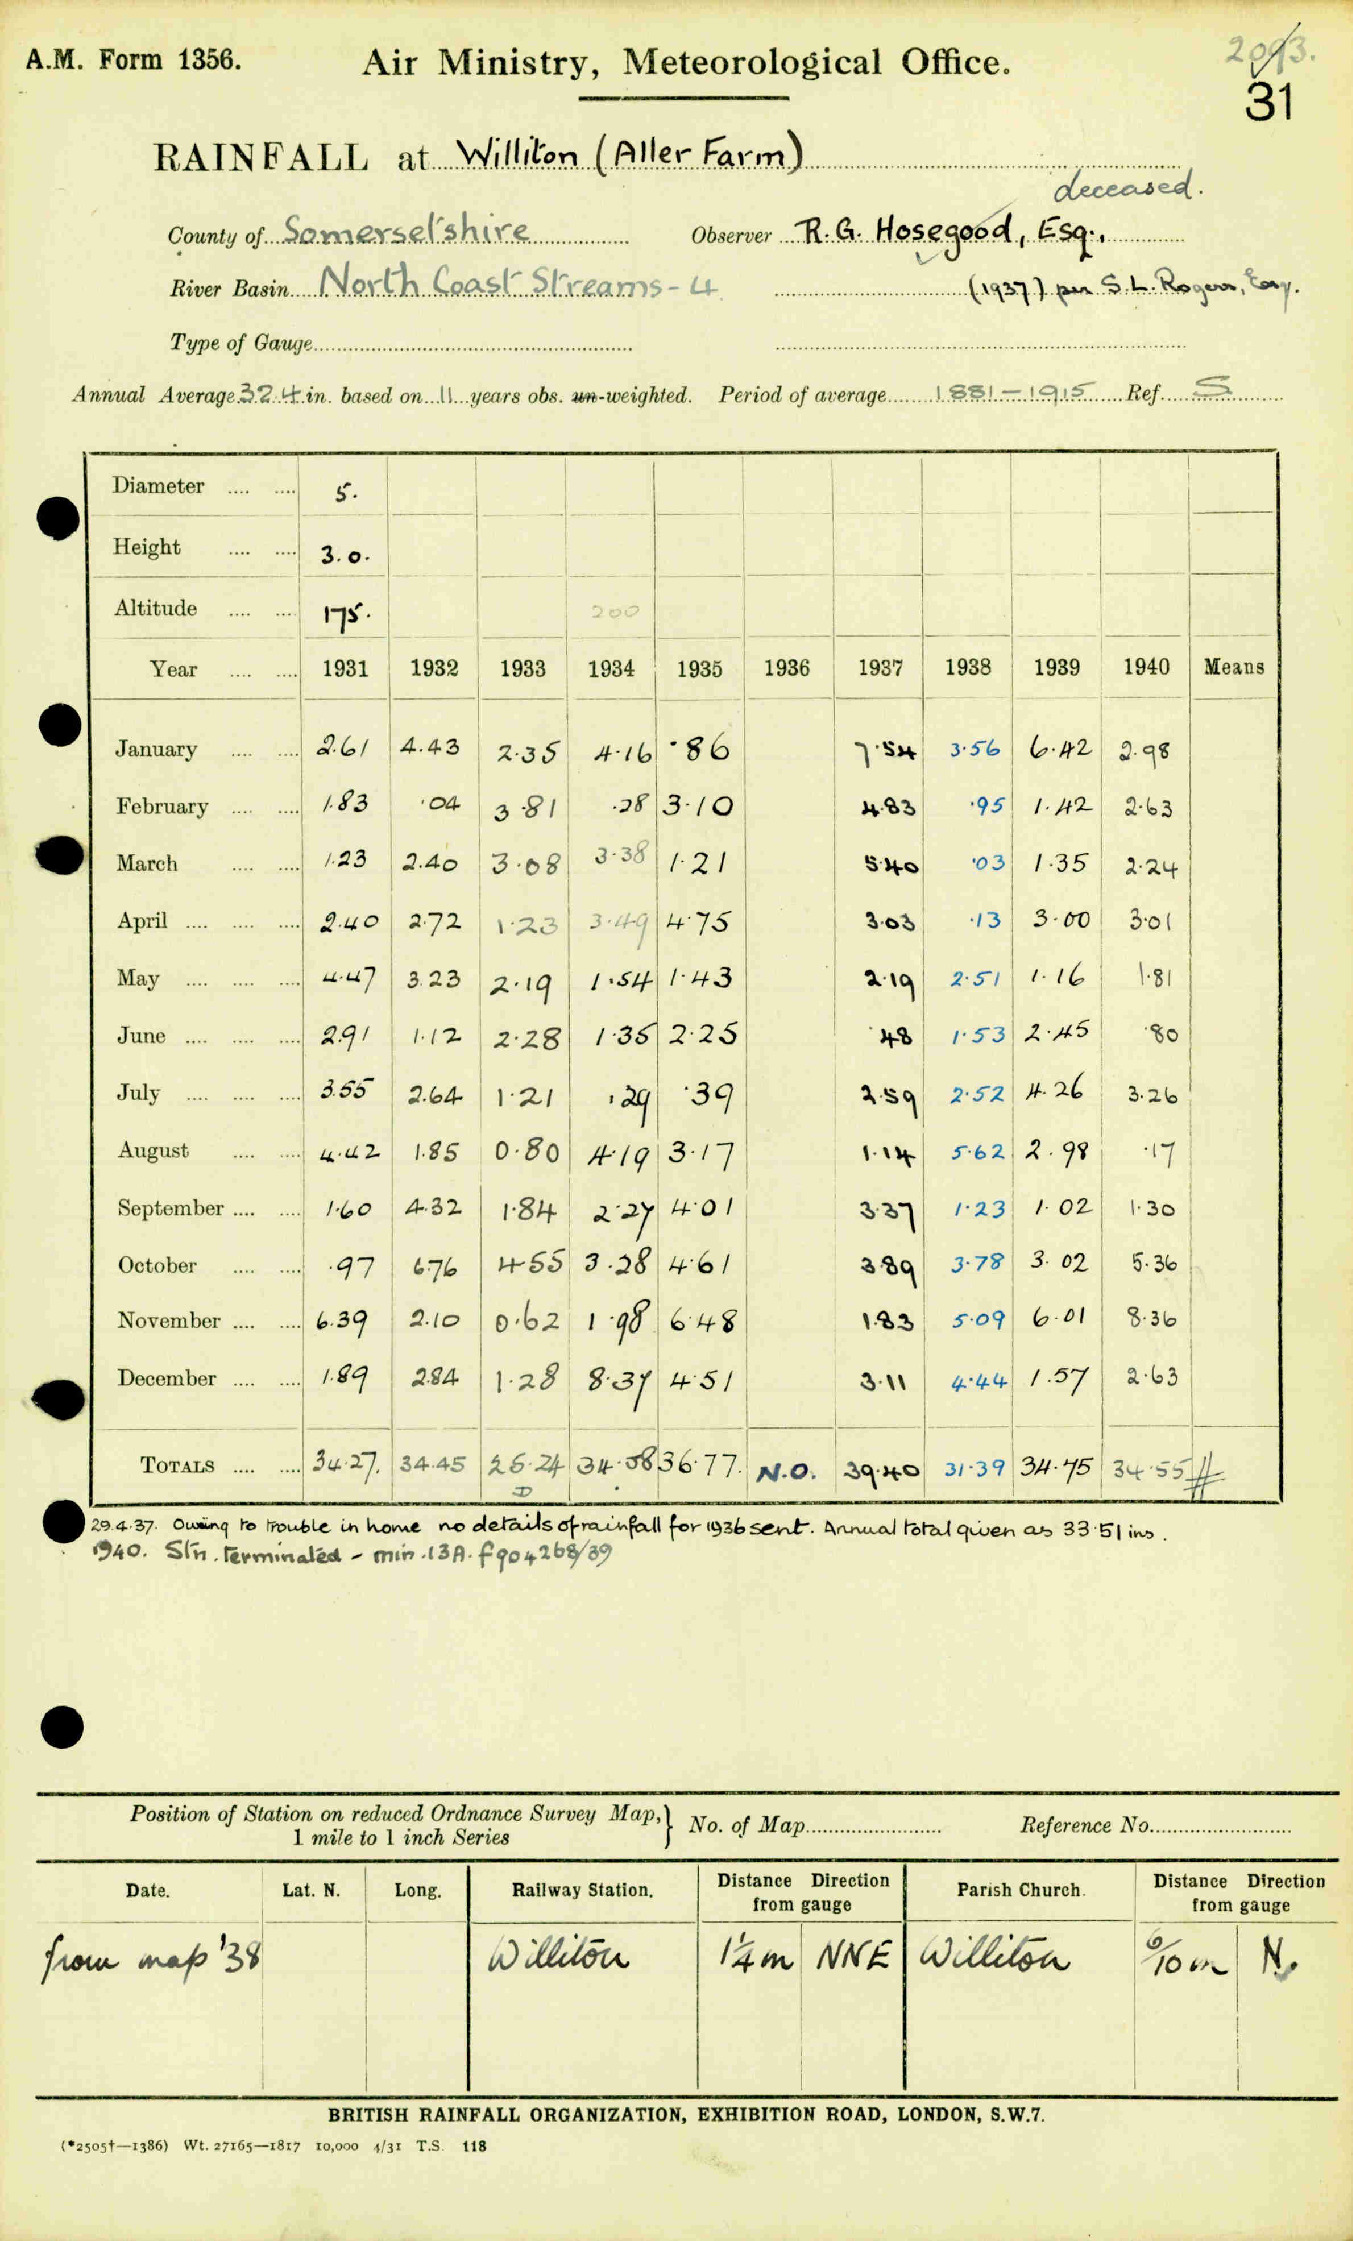 A.M. Form 1356.
Air Ministry, Meteorological Office.
2093.
31
RAINFALL at Williton (Aller Farm)
deceased.
County of Somersetshire Observer R. G. Hosegood, Esq.,
River Basin North Coast Streams - 4 (1937) per S. L. Rogers, Esq.
Type of Gauge
Annual Average 32.4 in. based on 11 years obs. un-weighted. Period of average 1881 - 1915 Ref. S
Diameter 5.
Height 3.0.
Altitude 175. 200
Year 1931 1932 1933 1934 1935 1936 1937 1938 1939 1940 Means
January 2.61 4.43 2.35 4.16 .86 7.54 3.56 6.42 2.98
February 1.83 .04 3.81 .28 3.10 4.83 .95 1.42 2.63
March 1.23 2.40 3.08 3.38 1.21 5.40 .03 1.35 2.24
April 2.40 2.72 1.23 3.49 4.75 3.03 .13 3.00 3.01
May 4.47 3.23 2.19 1.54 1.43 2.19 2.51 1.16 1.81
June 2.91 1.12 2.28 1.35 2.25 .48 1.53 2.45 .80
July 3.55 2.64 1.21 .29 .39 2.59 2.52 4.26 3.26
August 4.42 1.85 0.80 4.19 3.17 1.14 5.62 2.98 .17
September 1.60 4.32 1.84 2.27 4.01 3.37 1.23 1.02 1.30
October .97 6.76 4.55 3.28 4.61 3.89 3.78 3.02 5.36
November 6.39 2.10 0.62 1.98 6.48 1.83 5.09 6.01 8.36
December 1.89 2.84 1.28 8.37 4.51 3.11 4.44 1.57 2.63
TOTALS 34.27. 34.45 25.24 34.58 36.77. N.O. 39.40 31.39 34.75 34.55 #
D
29.4.37. Owing to trouble in home no details of rainfall for 1936 sent. Annual total given as 33.51 ins.
1940. Stn. terminated - min. 13A. f 904268/39
Position of Station on reduced Ordnance Survey Map, } No. of Map Reference No.
1 mile to 1 inch Series
Date. Lat. N. Long. Railway Station. Distance Direction from gauge Parish Church. Distance Direction from gauge
from map '38 Williton 1¼ m NNE Williton 6/10 m N.
BRITISH RAINFALL ORGANIZATION, EXHIBITION ROAD, LONDON, S.W.7.
(*2505†—1386) Wt. 27165—1817 10,000 4/31 T.S. 118